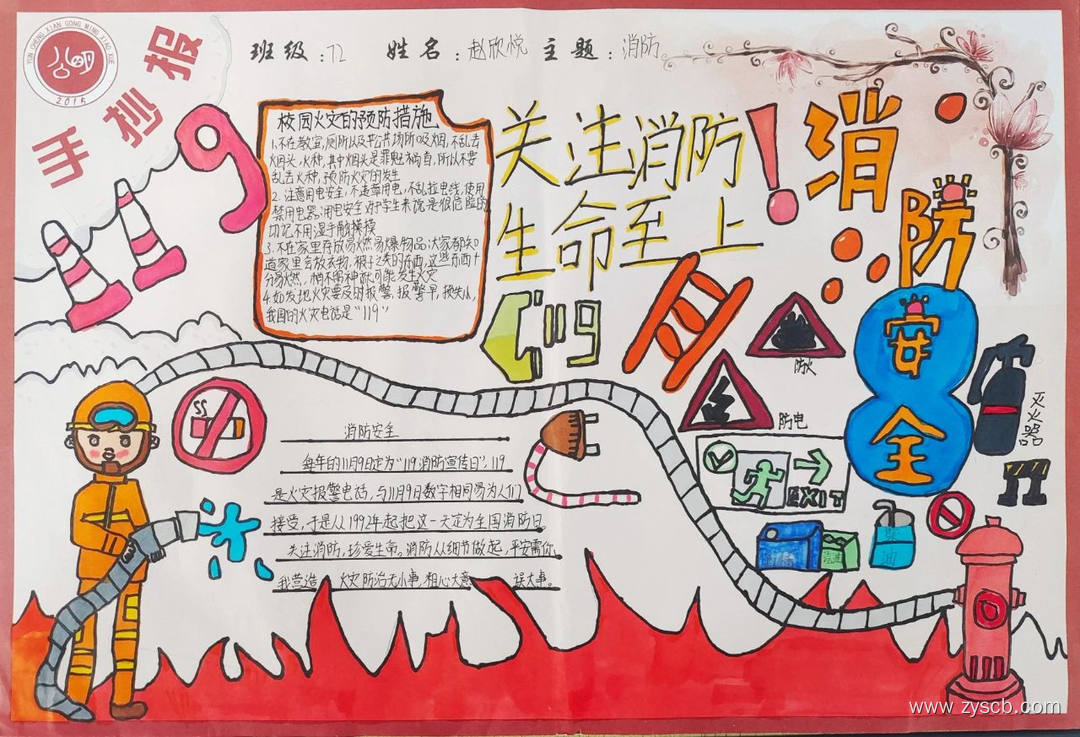 YUN CHENG XIAN GONG MING XIAO XUE
公明
2015
手抄报
班级:72 姓名:赵欣悦 主题:消防
119
校园火灾的预防措施
1.不在教室,厕所以及公共场所吸烟,不乱丢
烟头,火种,其中烟头是罪魁祸首,所以不要
乱丢火种,预防火灾的发生
2.注意用电安全,不违章用电,不乱拉电线,使用
禁用电器,用电安全对于学生来说是很危险的
切记不用湿手触摸摸
3.不在家里存放易燃易爆物品,大家都知
道家里会放衣物,被子之类的东西,这些东西十
分易燃,稍不留神就可能发生火灾
4.如发现火灾要及时报警,报警早,损失小,
我国的火灾电话是"119"
关注消防
生命至上
!
119
消防安全
防火
防电
EXIT
灭火器
油
消防安全
每年的11月9日定为"119消防宣传日",119
是火灾报警电话,与11月9日数字相同易为人们
接受,于是从1992年起把这一天定为全国消防日
关注消防,珍爱生命。消防从细节做起,平安需你
我营造 火灾防治无小事,粗心大意 误大事。
www.zyscb.com